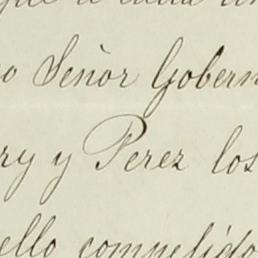 que a cada un
o Señor Gobern
ry y Perez los
ello compelido